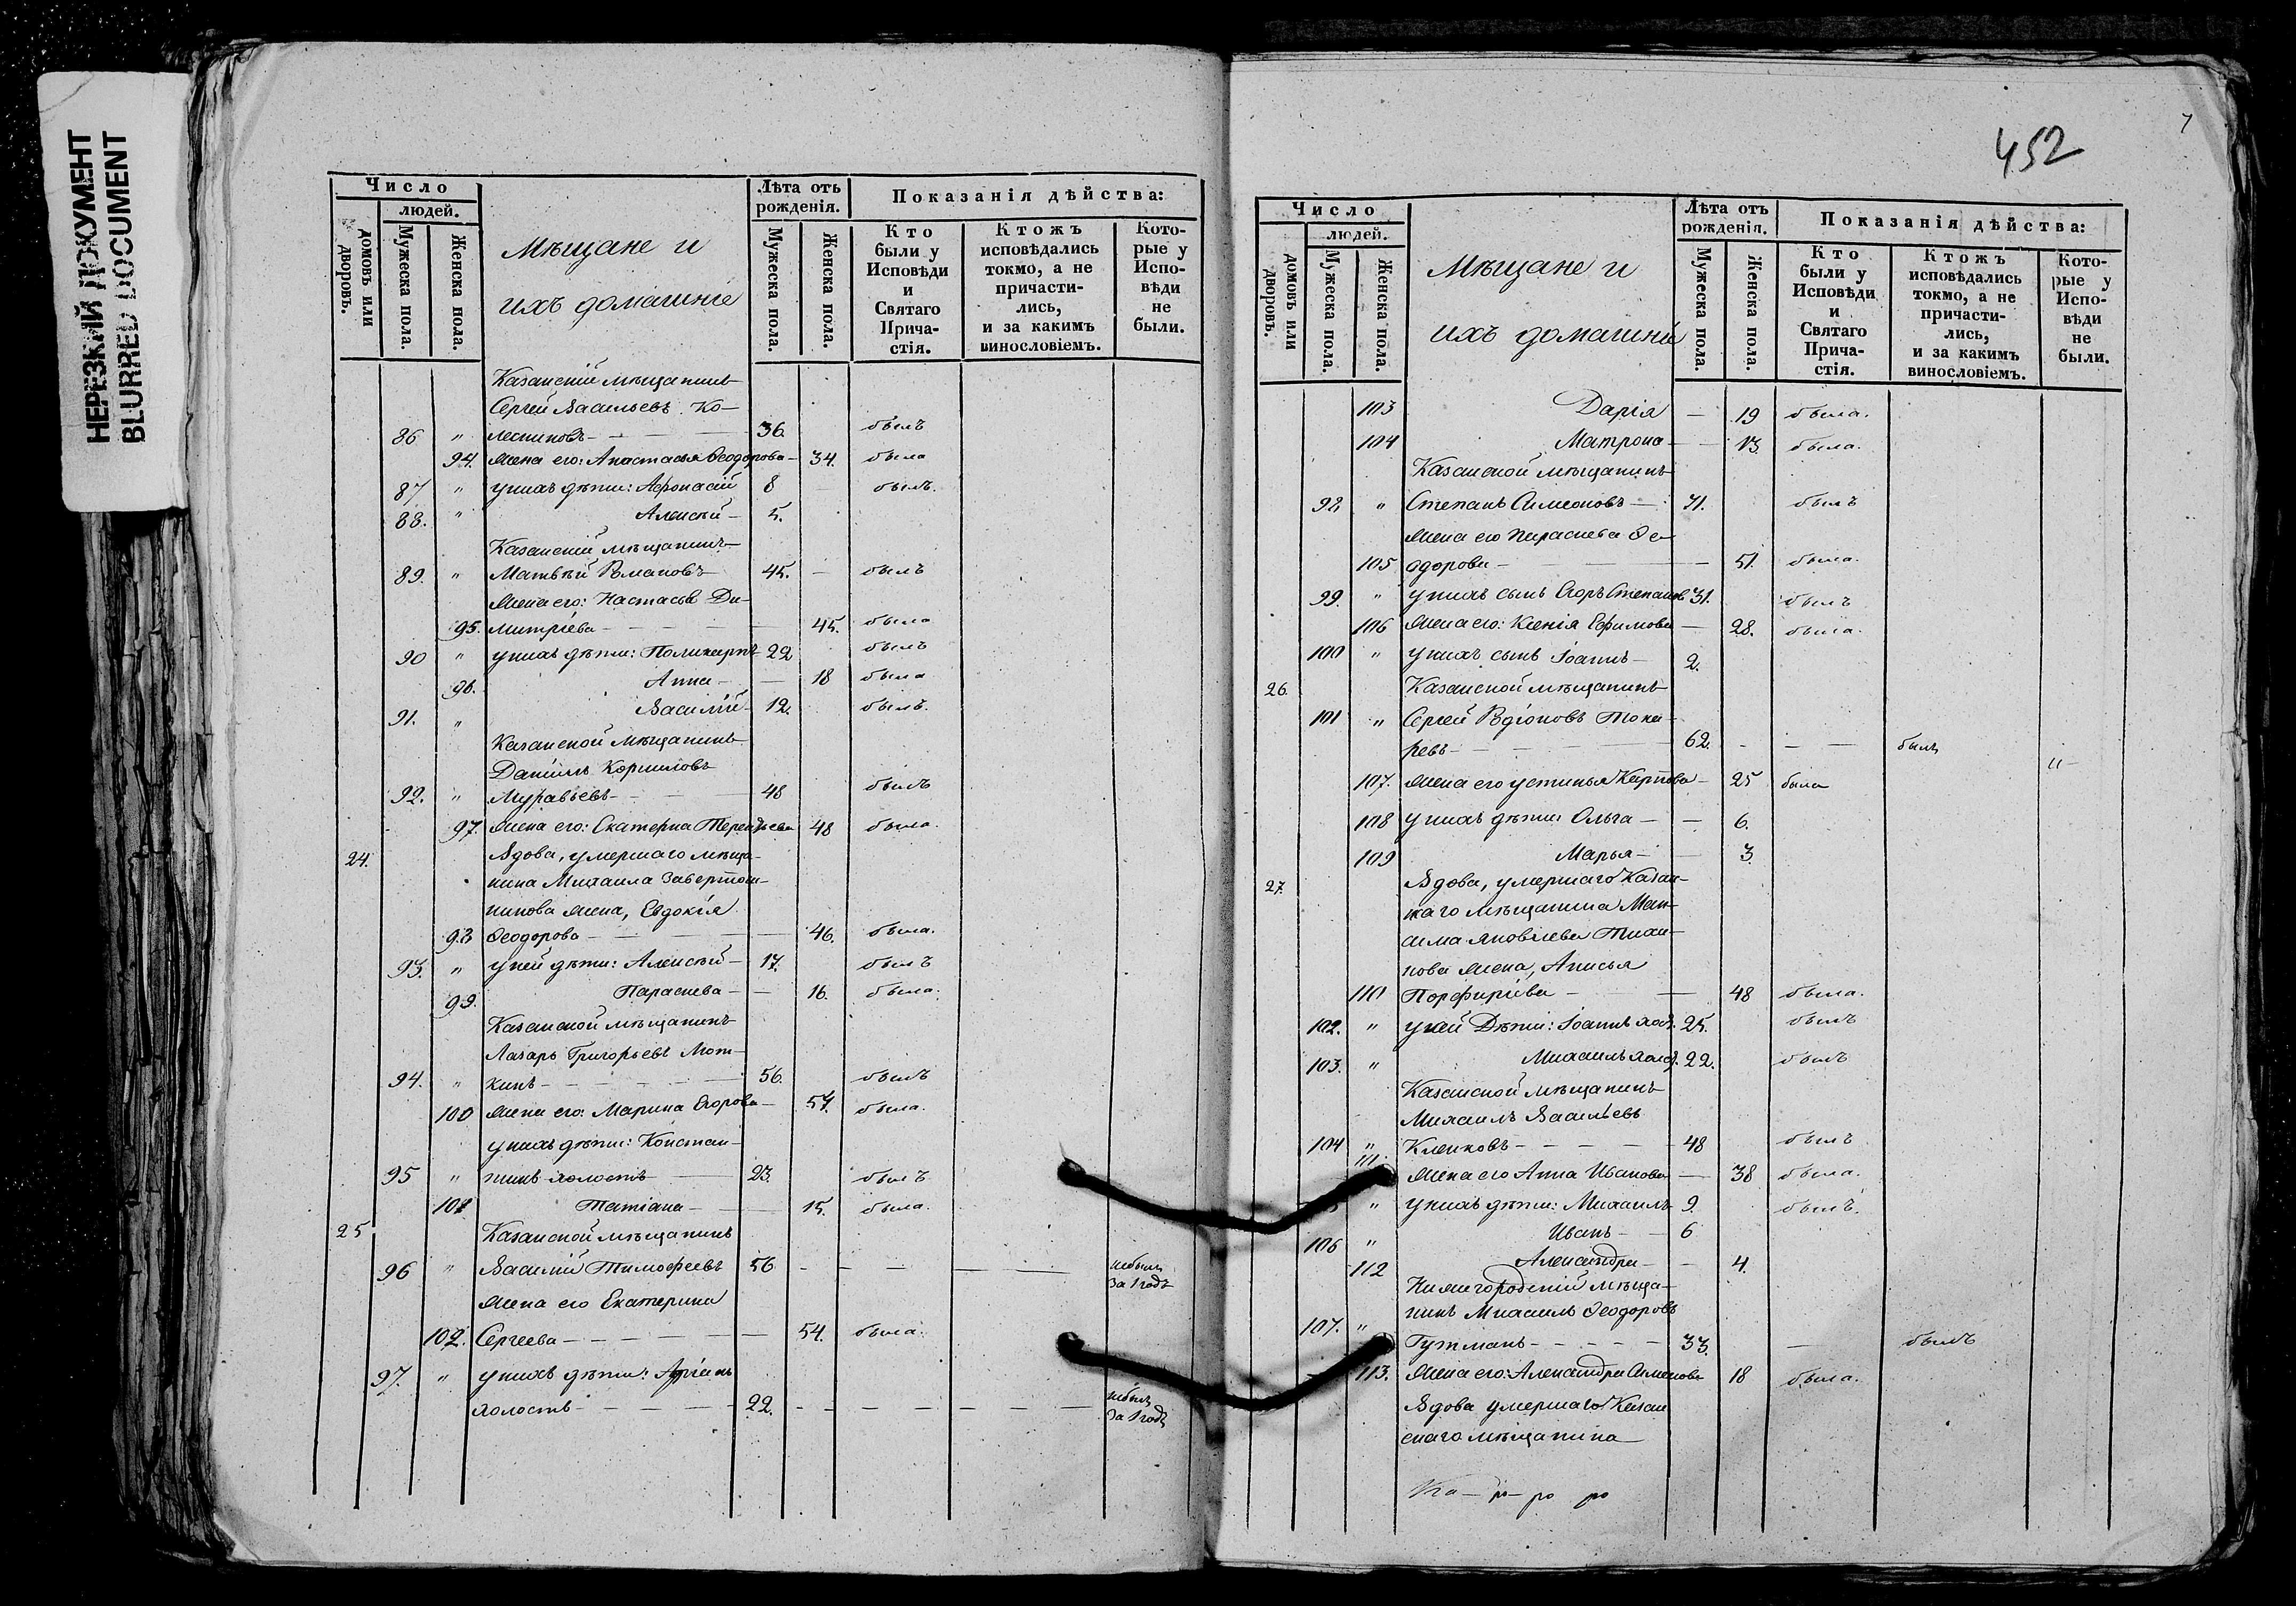 НЕРЕЗКИЙ ДОКУМЕНТ
BLURRED DOCUMENT
Число
людей.
домовъ или дворовъ.
Мужеска пола.
Женска пола.
Мѣщане и
ихъ домашніе
Лѣта отъ рожденія.
Мужеска пола.
Женска пола.
Показанія дѣйства:
Кто были у Исповѣди и Святаго Прича-стія.
Ктожъ исповѣдались токмо, а не причасти-лись, и за какимъ винословіемъ.
Кото-рые у Испо-вѣди не были.
Казанскій мѣщанинъ
Сергей Васильевъ Ко-
86 " лесниковъ 36. былъ
94. Жена его: Анастасья Ѳеодорова 34. была
87 " у нихъ дѣти: Афонасій 8 былъ.
88. " Алексѣй 5.
Казанскій мѣщанинъ
89. " Матвѣй Романовъ 45. былъ
Жена его: Настасья Ди-
95. митріева 45. была
90 " у нихъ дѣти: Поликарпъ 22 былъ
96. Анна 18 была
91. " Василій 12. былъ.
Казанской мѣщанинъ
Даніилъ Корниловъ
92. " Муравьевъ 48 былъ
97. Жена его: Екатерна Терентьева 48 была.
24. Вдова, умершаго мѣща-
нина Михаила
жена, Евдокія
98 Ѳеодорова 46. была.
93. " у ней дѣти: Алексѣй 17. былъ
99. Параскева 16. была.
Казанской мѣщанинъ
Лазарь Григорьевъ Мот-
94. " кинъ 56. былъ
100 Жена его: Марина Егорова 57. была.
у нихъ дѣти: Констан-
95 " тинъ холостъ 23. былъ
101 Татіана 15. была.
25 Казанской мѣщанинъ
96 " Василій Тимофеевъ 56 небылъ за 1 годъ
Жена его Екатерина
102. Сергеева 54. была.
97. " у нихъ дѣти:
холостъ 22. небылъ за 1 годъ
452
7
Число
людей.
домовъ или дворовъ.
Мужеска пола.
Женска пола.
Мѣщане и
ихъ домашніе
Лѣта отъ рожденія.
Мужеска пола.
Женска пола.
Показанія дѣйства:
Кто были у Исповѣди и Святаго Прича-стія.
Ктожъ исповѣдались токмо, а не причасти-лись, и за какимъ винословіемъ.
Кото-рые у Испо-вѣди не были.
103 Дарія 19 была.
104 Матрона 13. была.
Казанской мѣщанинъ
98 " Степанъ Симеоновъ 71. былъ
Жена его Параскева Ѳе-
105 одорова 51. была.
99. " у нихъ сынъ Егоръ Степановъ 31. былъ
106 Жена его: Ксенія Ефимова 28. была.
100 " у нихъ сынъ Іоаннъ 2.
26. Казанской мѣщанинъ
101 " Сергей Родіоновъ Тока-
ревъ 62. былъ
107. Жена его Устинья Карпова 25 была
108 у нихъ дѣти Ольга 6.
109 Марья 3.
27. Вдова, умершаго Казан-
скаго мѣщанина Мак-
сима Яковлева
жена, Анисья
110 Порфиріева 48 была.
102. " у ней Дѣти: Іоаннъ холс. 25. былъ
103. " Михаилъ холс. 22. былъ
Казанской мѣщанинъ
Михаилъ Васильевъ
104 " Клековъ 48 былъ
111. Жена его Анна Иванова 38 была.
" у нихъ дѣти: Михаилъ 9. былъ.
106 " Иванъ 6
112 Александра 4.
Нижегородскій мѣща-
нинъ Михаилъ Ѳеодоровъ
107. " Гутманъ 33. былъ
113. Жена его: Александра Симеонова 18 была.
Вдова умершаго Казан
скаго мѣщанина